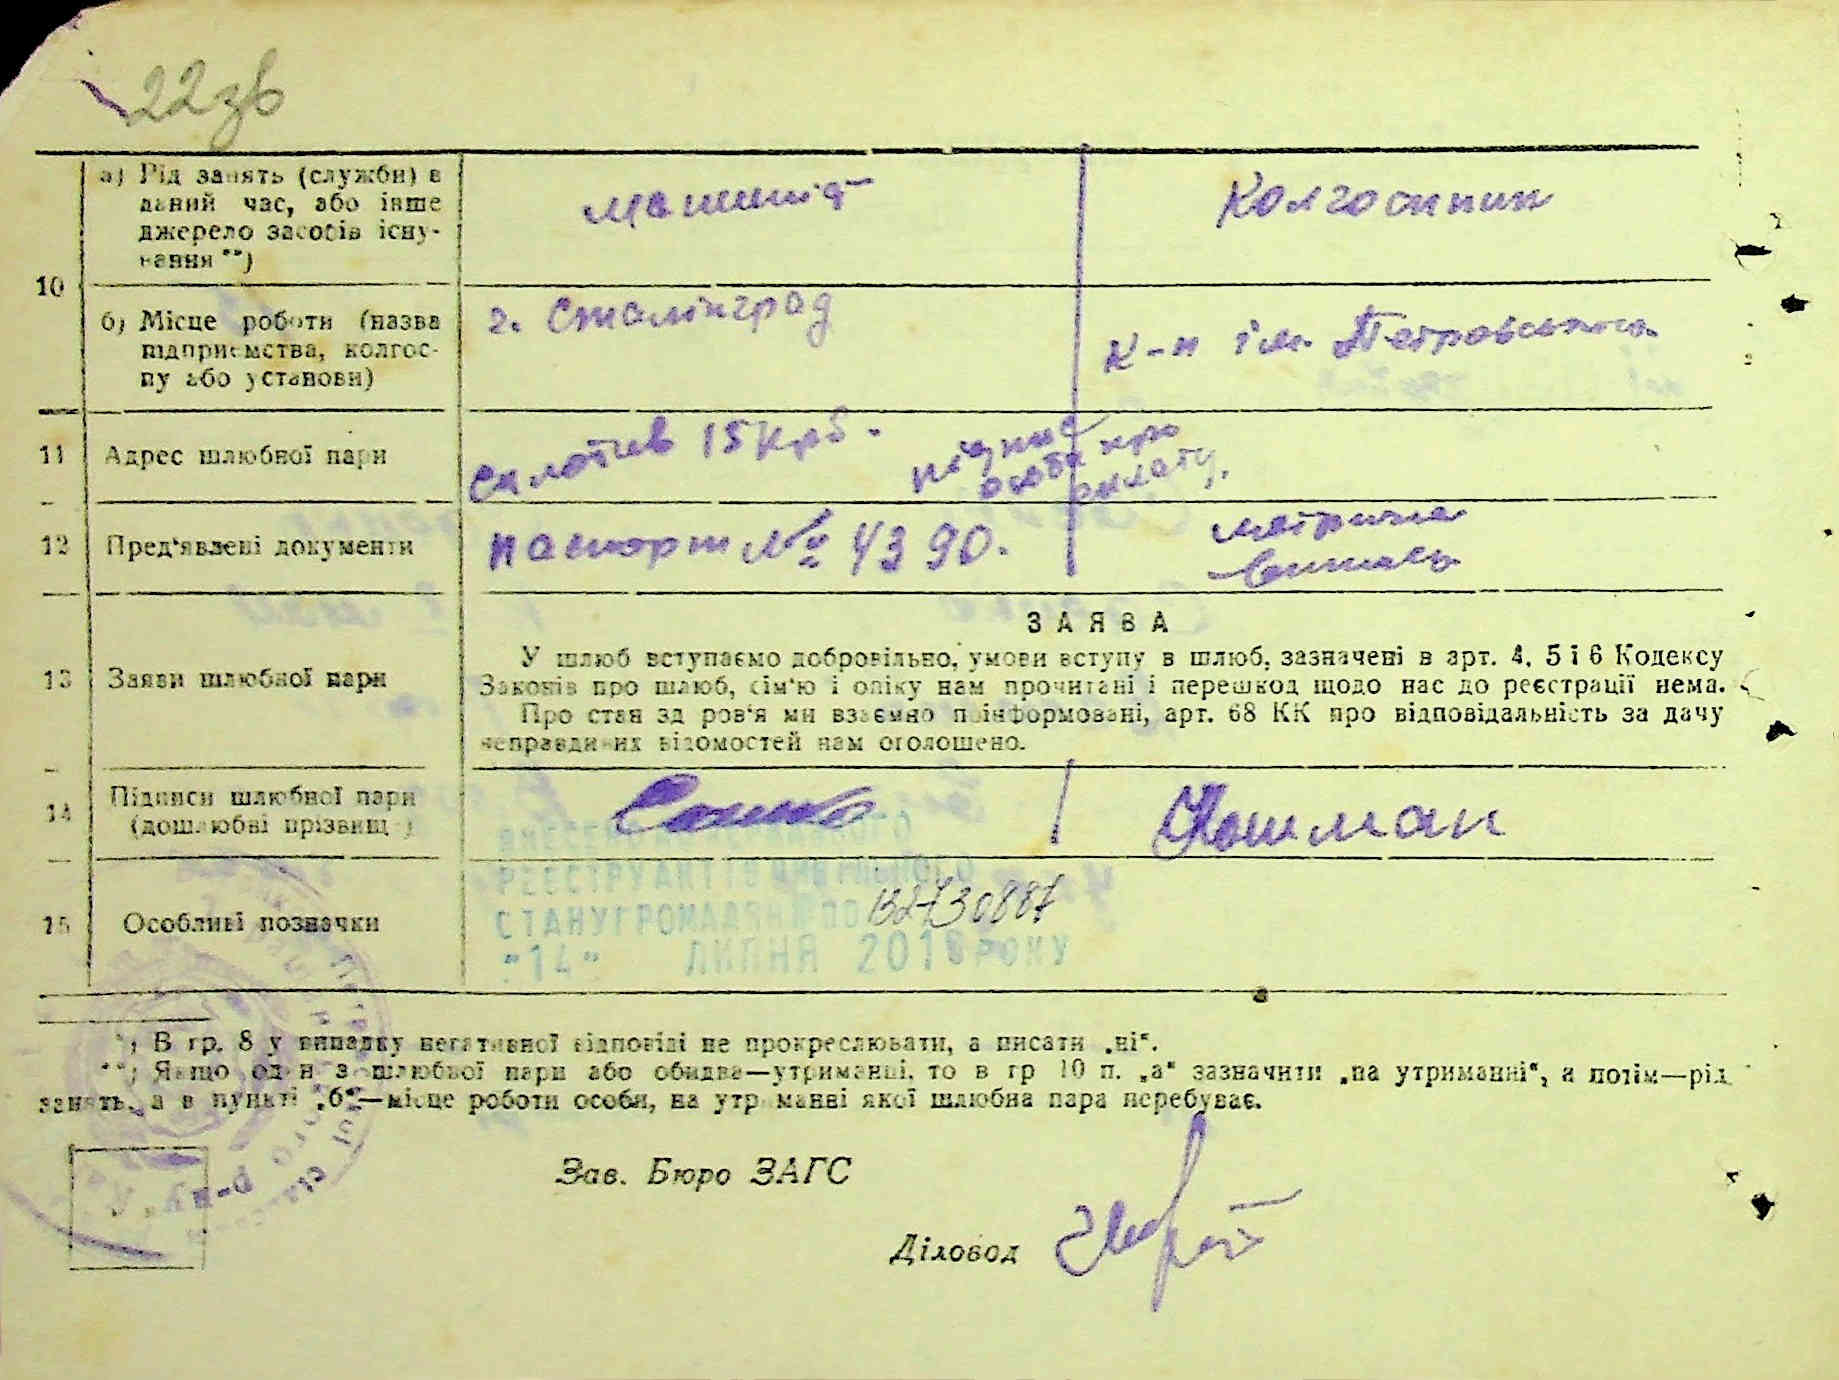 22зв
10
а) Рід занять (служби) в
даний час, або інше
джерело засобів існу-
вання **)
машиніст
Колгоспник
б) Місце роботи (назва
підприємства, колгос-
пу або установи)
г. Сталінград
к-п ім. Петровського
11
Адрес шлюбної пари
15 крб.
про
оплату.
12
Пред'явлені документи
паспорт № 4390.
метрична
виписка
13
Заяви шлюбної пари
ЗАЯВА
У шлюб вступаємо добровільно, умови вступу в шлюб, зазначені в арт. 4, 5 і 6 Кодексу
Законів про шлюб, сім'ю і опіку нам прочитані і перешкод щодо нас до реєстрації нема.
Про стан здоров'я ми взаємно поінформовані, арт. 68 КК про відповідальність за дачу
неправдивих відомостей нам оголошено.
14
Підписи шлюбної пари
(дошлюбні прізвища)
Сошко
Кошман
15
Особливі позначки
ВНЕСЕНО ДО ДЕРЖАВНОГО
РЕЄСТРУ АКТІВ ЦИВІЛЬНОГО
СТАНУ ГРОМАДЯН ПО 132730887
"14" ЛИПНЯ 2018 РОКУ
*) В гр. 8 у випадку негативної відповіді не прокреслювати, а писати „ні“.
**) Якщо один з шлюбної пари або обидва—утриманці, то в гр 10 п. „а“ зазначити „на утриманні“, а потім—рід
занять, а в пункті „б“—місце роботи особи, на утриманні якої шлюбна пара перебуває.
Зав. Бюро ЗАГС
Діловод